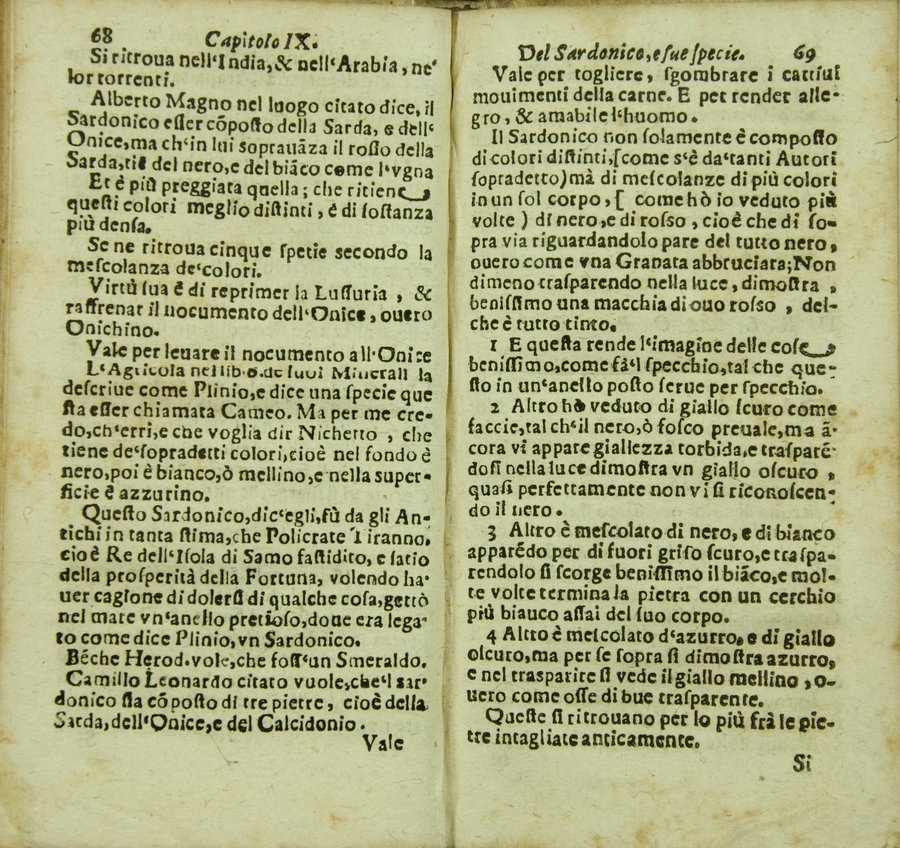 68 Capitolo IX.
Si ritroua nell'India, & nell'Arabia, ne'
lor torrenti.
Alberto Magno nel luogo citato dice, il
Sardonico eſſer cõpoſto della Sarda, e dell'
Onice, ma ch'in lui soprauãza il roſſo della
Sarda, tie del nero, e del biãco come l'vgna
Et è più preggiata quella; che ritiene
queſti colori meglio diſtinti, é di ſoſtanza
più denſa.
Se ne ritroua cinque ſpetie secondo la
meſcolanza de'colori.
Virtù ſua é di reprimer la Luſſuria, &
raffrenar il nocumento dell'Onice, ouero
Onichino.
Vale per leuare il nocumento all'Onice
L'Agricola nel lib. 6. de ſuoi Minerali la
deſcriue come Plinio, e dice una ſpecie que
ſta eſſer chiamata Cameo. Ma per me cre-
do, ch'erri, e che voglia dir Nichetto, che
tiene de'ſopradetti colori, cioè nel fondo è
nero, poi è bianco, ò mellino, e nella super-
ficie è azzurino.
Queſto Sardonico, dic'egli, fù da gli An-
tichi in tanta ſtima, che Policrate Tiranno,
cioè Re dell'Iſola di Samo faſtidito, e ſatio
della proſperità della Fortuna, volendo ha-
uer cagione di dolerſi di qualche coſa, gettò
nel mare vn'anello pretioſo, doue era lega-
to come dice Plinio, vn Sardonico.
Bẽche Herod. vole, che foſſ'un Smeraldo.
Camillo Leonardo citato vuole, che'l sar-
donico ſia cõpoſto di tre pietre, cioè della
Sarda, dell'Onice, e del Calcidonio.
Vale
Del Sardonico, e ſue ſpecie. 69
Vale per togliere, ſgombrare i cattiui
mouimenti della carne. E per render alle-
gro, & amabile l'huomo.
Il Sardonico non ſolamente è compoſto
di colori diſtinti, [come s'è da'tanti Autori
ſopradetto) mà di meſcolanze di più colori
in un ſol corpo, [ come hò io veduto più
volte ) di nero, e di roſso, cioè che di ſo-
pra via riguardandolo pare del tutto nero,
ouero come vna Granata abbruciara; Non
dimeno traſparendo nella luce, dimoſtra,
beniſſimo una macchia di ouo roſso, del-
che è tutto tinto.
1 E queſta rende l'imagine delle coſe
beniſſimo, come fà'l ſpecchio, tal che que-
ſto in un'anello poſto ſerue per ſpecchio.
2 Altro hò veduto di giallo ſcuro come
faccie, tal ch'il nero, ò foſco preuale, ma ã-
cora vi appare giallezza torbida, e traſparẽ-
doſi nella luce dimoſtra vn giallo oſcuro,
quaſi perfettamente non vi ſi riconoſcen-
do il nero.
3 Altro è meſcolato di nero, e di bianco
apparẽdo per di fuori griſo ſcuro, e traſpa-
rendolo ſi ſcorge beniſſimo il biãco, e mol-
te volte termina la pietra con un cerchio
più biauco aſſai del ſuo corpo.
4 Altro è meſcolato d'azurro, e di giallo
oſcuro, ma per ſe ſopra ſi dimoſtra azurro,
e nel trasparite ſi vede il giallo mellino, o-
uero come oſſe di bue traſparente.
Queſte ſi ritrouano per lo più frà le pie-
tre intagliate anticamente.
Si